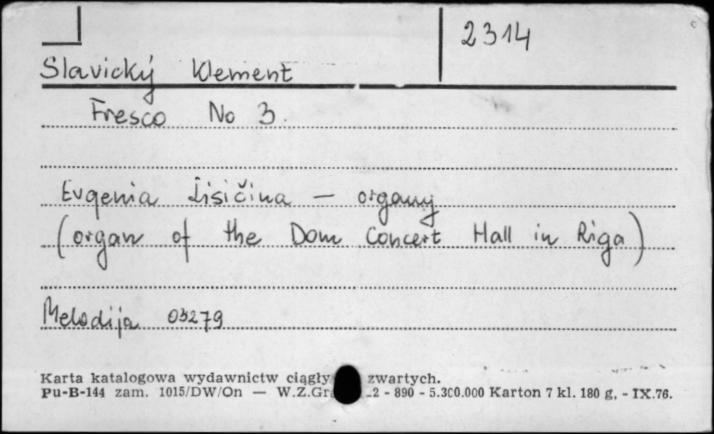 2314
Slavický Klement
Fresco No 3.
Evgenia Lisičina — organy
(organ of the Dom Concert Hall in Riga)
Melodija 03279
Karta katalogowa wydawnictw ciągły zwartych.
Pu-B-144 zam. 1015/DW/On — W.Z.Gr 2 - 890 - 5.300.000 Karton 7 kl. 180 g. - IX.76.